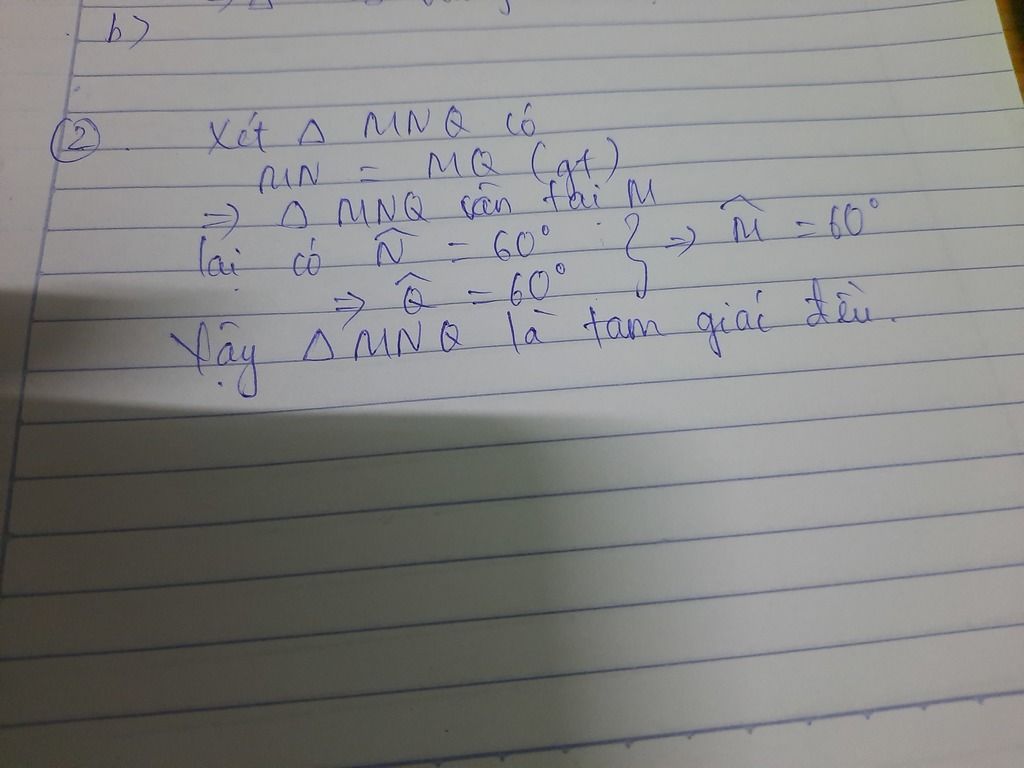 b)
② Xét Δ MNQ có
MN = MQ (gt)
⇒ Δ MNQ cân tại M
lại có N̂ = 60° } ⇒ M̂ = 60°
⇒ Q̂ = 60°
Vậy Δ MNQ là tam giác đều.